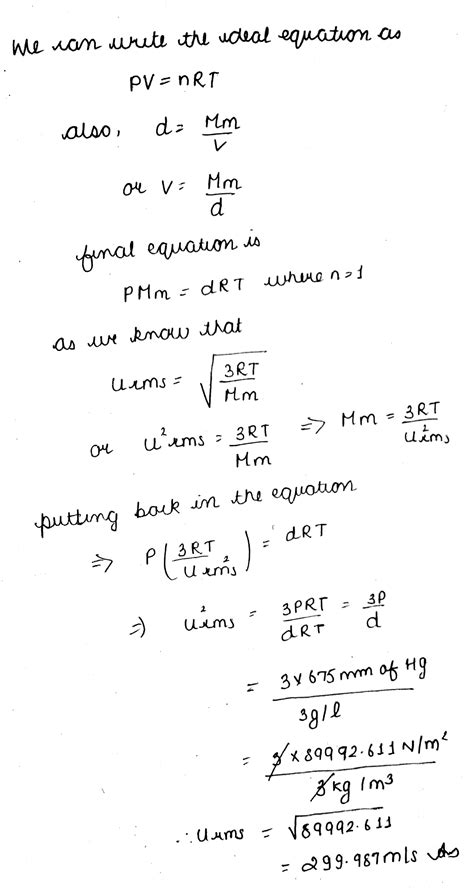 We can write the ideal equation as
PV = nRT
also, d = Mm/V
or V = Mm/d
final equation is
PMm = dRT where n=1
as we know that
Urms = √(3RT/Mm)
or U²rms = 3RT/Mm ⇒ Mm = 3RT/U²rms
putting back in the equation
⇒ P(3RT/Urms²) = dRT
⇒ U²rms = 3PRT/dRT = 3P/d
= 3 x 675 mm of Hg / 3g/l
= 3 x 89992.611 N/m² / 3 kg/m³
∴ Urms = √89992.611
= 299.987 m/s Ans